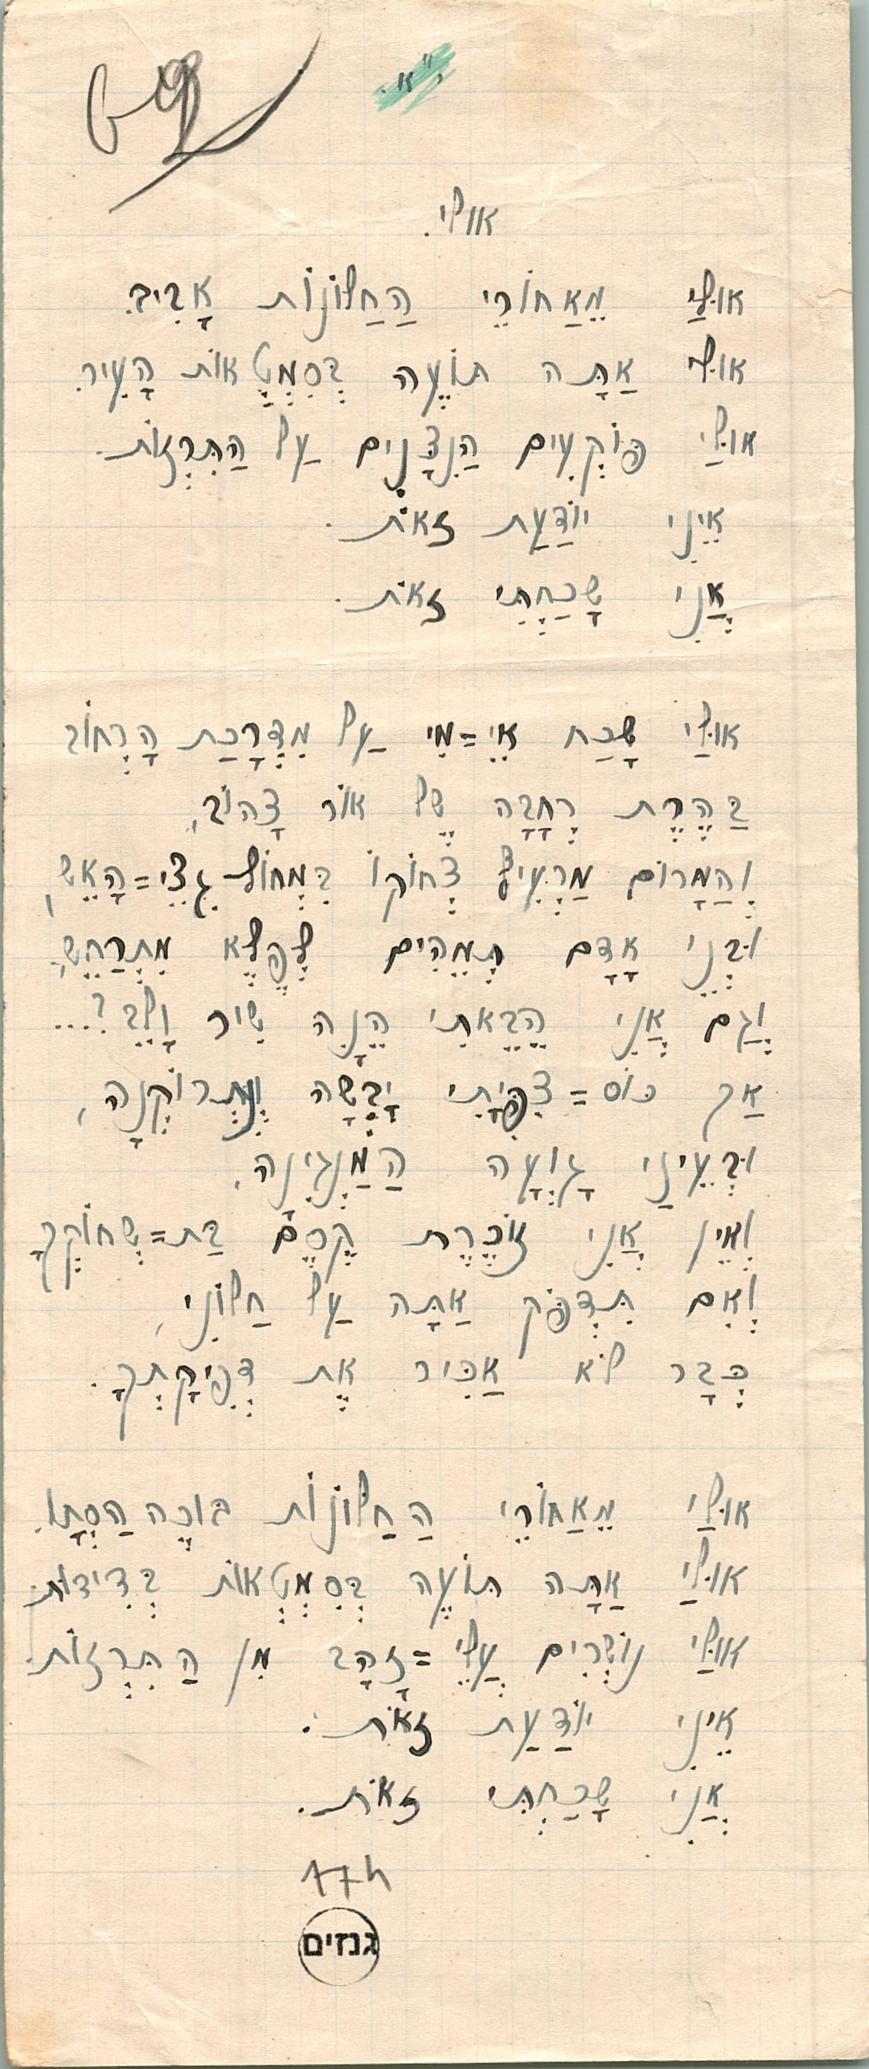 י"א.
אולי.
אוּלַי מֵאֲחוֹרֵי הַחַלּוֹנוֹת אָבִיב.
אוּלַי אַתָּה תּוֹעֶה בְּסִמְטָאוֹת הָעִיר.
אוּלַי פּוֹקְעִים הַנִּצָּנִים עַל הַתִּרְזוֹת.
אֵינֶנִי יוֹדַעַת זֹאת.
אֲנִי שָׁכַחְתִּי זֹאת.
אוּלַי שָׁכַח אֵי=מִי עַל מִדְרֶכֶת הָרְחוֹב
בַּהֶרֶת רְחָבָה שֶׁל אוֹר צָהוֹב,
וְהַמָּרוֹם מַרְעִיף צְחוֹקוֹ בִּמְחוֹל גִּצֵּי=הָאֵשׁ,
וּבְנֵי אָדָם תְּמֵהִים לְפֶלֶא מִתְרַחֵשׁ,
וְגַם אֲנִי הֲבֵאתִי הֵנָּה שִׁיר וָלֵב?...
אַךְ כּוֹס=צִפִּיָּתִי יָבְשָׁה וְנִתְרוֹקְנָה,
וּבְעֵינַי גָּוְעָה הַמַּנְגִּינָה,
וְאֵין אֲנִי זוֹכֶרֶת קֶסֶם בַּת=שְׂחוֹקְךָ
וְאִם תִּדְפֹּק אַתָּה עַל חַלּוֹנִי,
כְּבָר לֹא אַכִּיר אֶת דְּפִיקָתְךָ.
אוּלַי מֵאֲחוֹרֵי הַחַלּוֹנוֹת בּוֹכֶה הַסְּתָו.
אוּלַי אַתָּה תּוֹעֶה בְּסִמְטָאוֹת בְּדִידוּת.
אוּלַי נוֹשְׁרִים עֲלֵי=זָהָב מִן הַתִּרְזוֹת.
אֵינֶנִי יוֹדַעַת זֹאת.
אֲנִי שָׁכַחְתִּי זֹאת.
גנזים